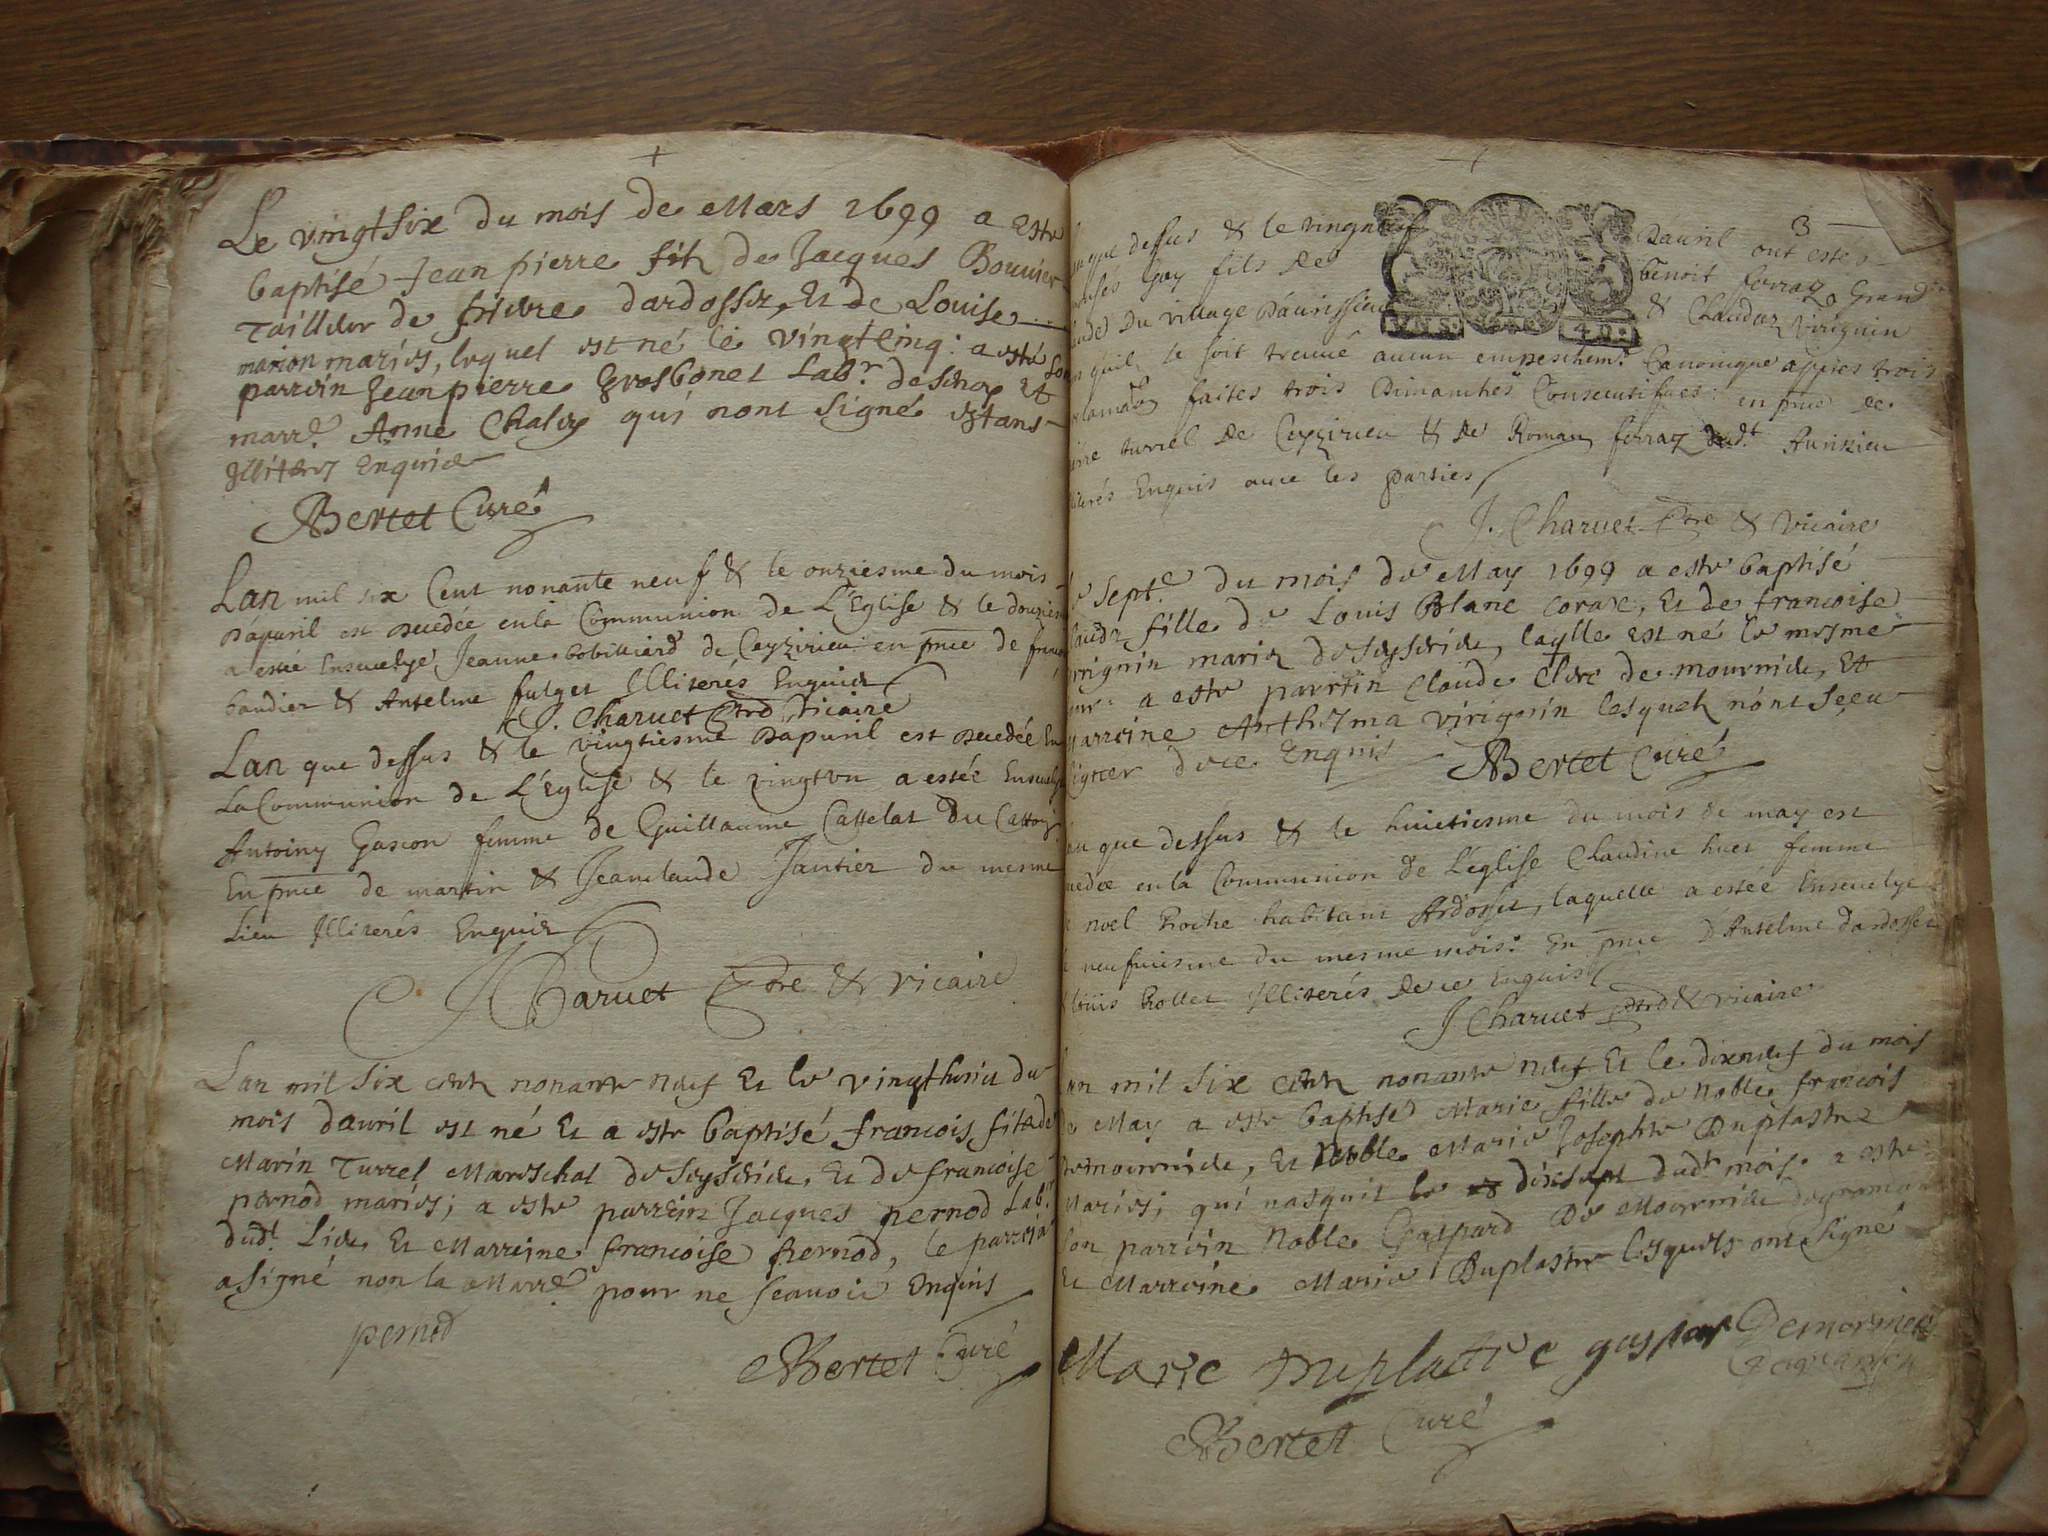 Le vingtsix du mois de Mars 1699 a este
baptisé Jean pierre fils de Jacques Bouvier
Tailleur de frierre dardosset, Et de Louise
marion mariés, lequel est né le vingtcinq: a esté son
parrein Jean pierre Grosbonet Labr. de Et
marre. Anne Chaley qui nont signé estans
Illiterés Enquis
Bertet Curé
Lan mil six Cent nonante neuf & le onziesme du mois
Dapuril est decedée en la Communion de L'Eglise & le douziem
a estée Ensevelye Jeanne bobilliard de Ceyzirieu en pnce de
baudier & Antelme fulget Illiterés Enquis
J. Charuet ptre Vicaire
Lan que dessus & le vingtiesme Dapuril est decedée En
La Communion de L'Eglise & le vingtun a estée Ensevelye
Antoiny Gascon femme de Guillaume Cattelat Du
En pnce de martin & Jeanclaude Jantier du mesme
Lieu Illiterés Enquis
J Charuet ptre & vicaire
Lan mil six cents nonante neuf Et le vingthuict du
mois davril est né Et a este baptisé francois fils de
Marin Turrel Mareschal de Seyserieu, Et de francoise
pernod mariés; a este parrein Jacques pernod Labr.
dudt. Lieu Et Marreine francoise pernod, le parrein
a signé non la Marre. pour ne scavoir Enquis
pernod
Bertet Curé
3
an que dessus & le vingtneuf Davril ont estes
Guy fils de benoit ferraz Grand
Du village Daurissieu & Claudaz Viriguin
quil se soit treuué aucun empeschemt. Canonique appres trois
faites trois Dimanches Consecutifues: en pnce de
turrel de Ceyzirieu & de Roman ferraz dudt. Aurissieu
Enquis auec les parties
J. Charuet ptre & Vicaire
Sept.e du mois de May 1699 a este baptisé
fille de Louis Blanc corax, Et de francoise
viriguin mariés de Seyserieu, laqlle est né le mesme
jour: a este parrein Claude Clerc de mournieu, Et
marreine Anthesma viriguin lesquels nont sceu
signer de ce Enquis
Bertet Curé
an que dessus & le huictiesme du mois de may est
decedée en la Communion de L'eglise Claudine huet femme
noel Roche habitant Ardosset, laquelle a estée Ensevelye
neufuiesme du mesme mois: En pnce D'Antelme dardosset
Louis Rollet Illiterés de ce Enquis
J Charuet ptre & vicaire
an mil six cents nonante neuf Et le dixneuf du mois
de May a este baptisé Marie fille de Noble francois
demournieu, Et Noble Marie Josephte Duplastre
Mariés; qui nasquit le dixsept dudt mois. a este
son parrein Noble Gaspard De Mournieu
Et Marreine Marie Duplastre lesquels ont signé
Marie Duplattre gaspar Demornieu
Bertet Curé